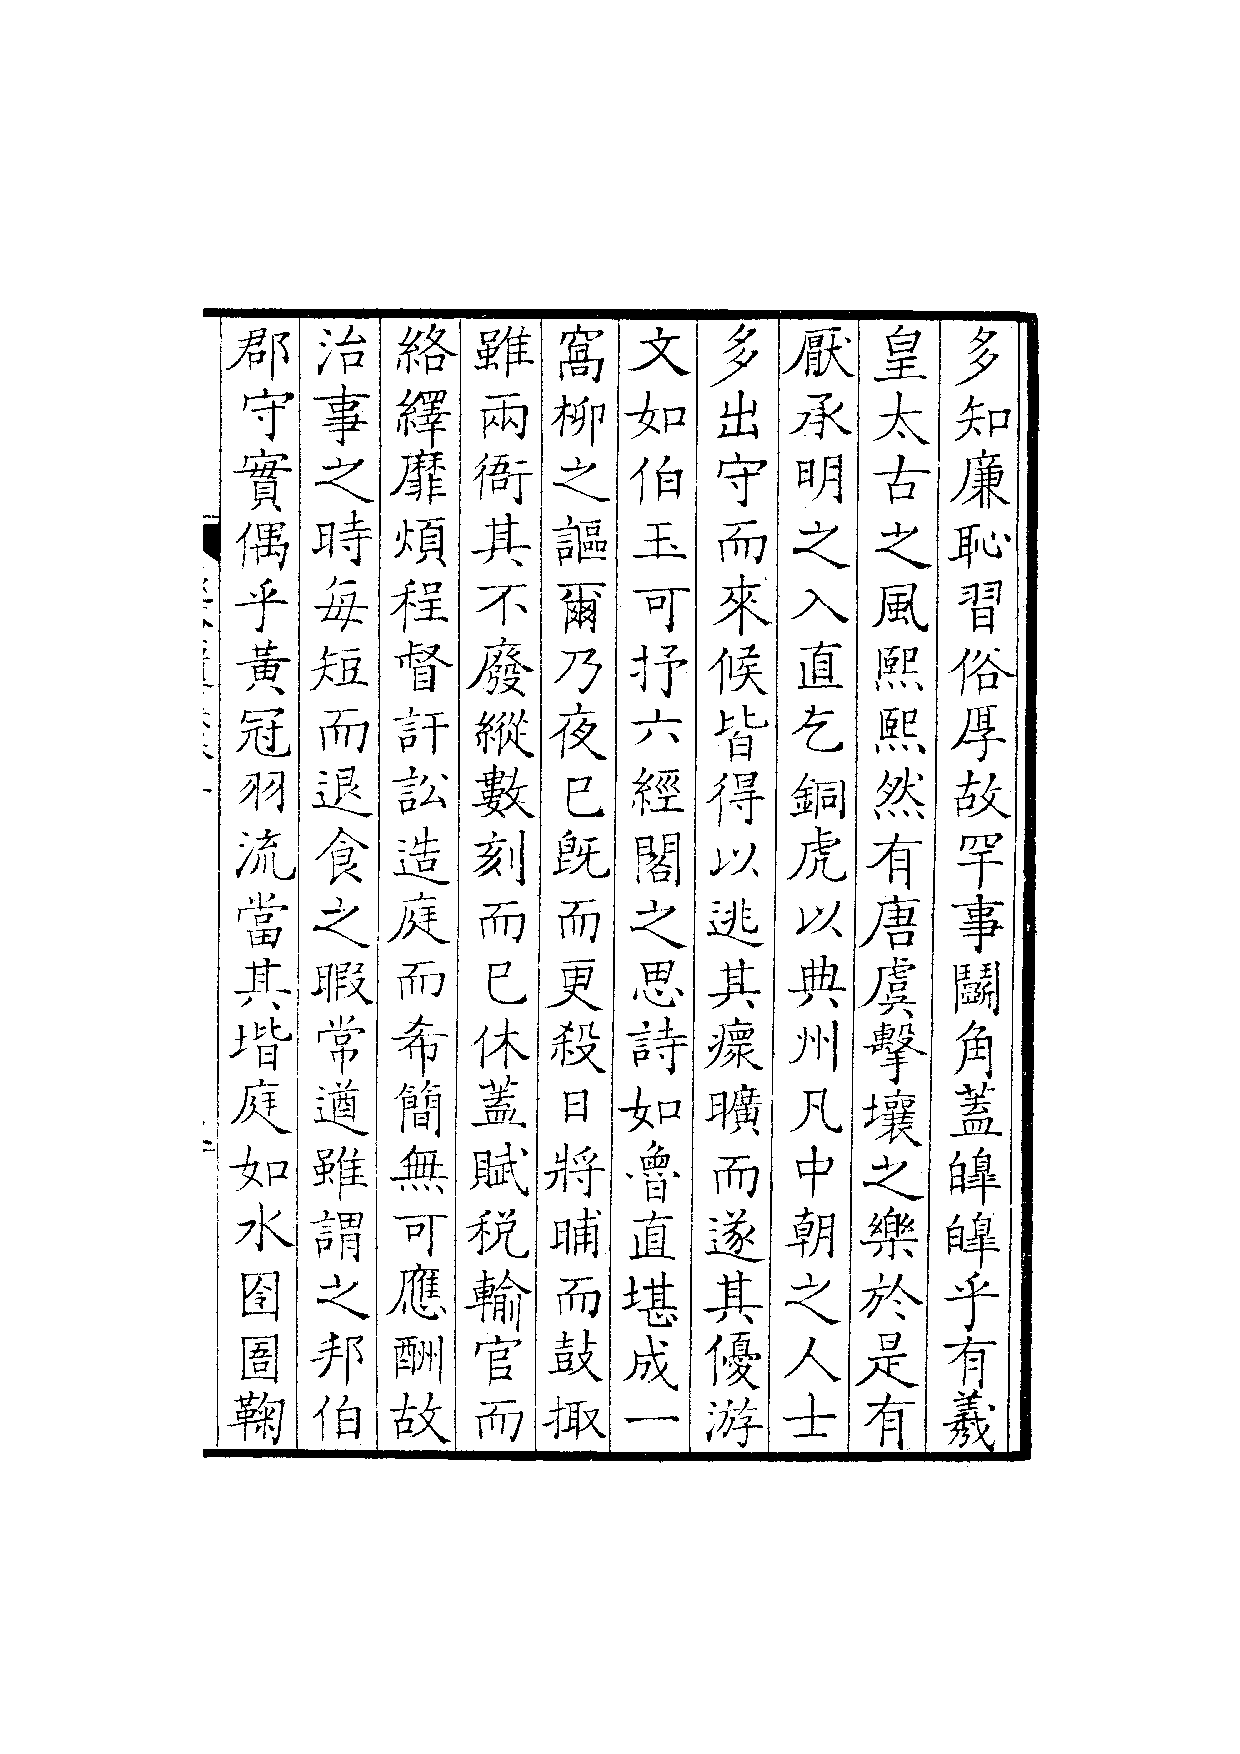 多知廉恥習俗厚故罕事鬭角蓋皥皥乎有羲
皇太古之風熙熙然有唐虞擊壤之樂於是有
厭承明之入直乞銅虎以典州凡中朝之人士
多出守而來候皆得以逃其瘝曠而遂其優游
文如伯玉可抒六經閣之思詩如魯直堪成一
窩柳之謳爾乃夜巳旣而更殺日將晡而鼓掫
雖兩衙其不廢縱數刻而巳休蓋賦稅輸官而
絡繹靡煩程督訐訟造庭而希簡無可應酬故
治事之時每短而退食之暇常遒雖謂之邦伯
郡守實偶乎黃冠羽流當其堦庭如水囹圄鞠